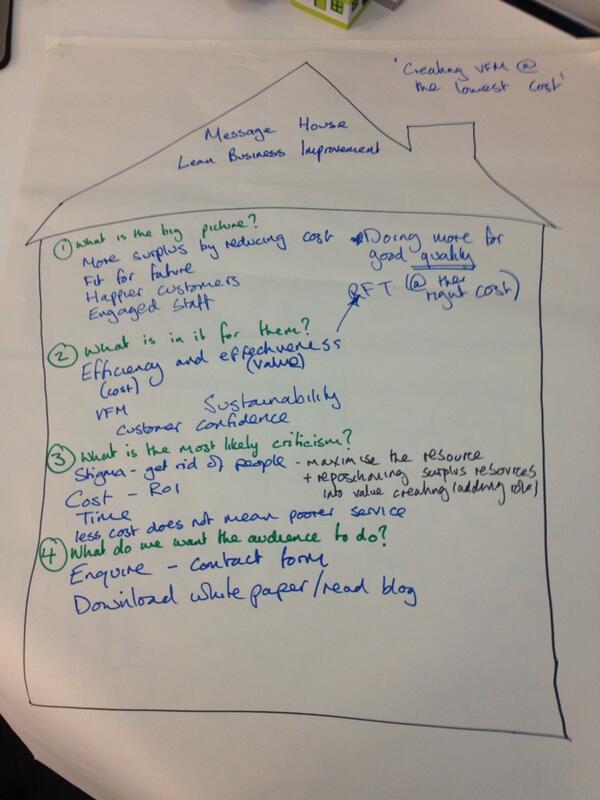 'Creating VFM @
the lowest cost'
Message House
Lean Business Improvement
1 What is the big picture?
More surplus by reducing cost
Fit for future
Happier customers
Engaged Staff
Doing more for
good quality
RFT (@ the
right cost)
2 What is in it for them?
Efficiency and effectiveness
(cost) (value)
VFM Sustainability
Customer confidence
3 What is the most likely criticism?
Stigma - get rid of people - maximise the resource
+ repositioning surplus resources
into value creating (adding role)
Cost - ROI
Time
less cost does not mean poorer service
4 What do we want the audience to do?
Enquire - Contact form
Download white paper/read blog